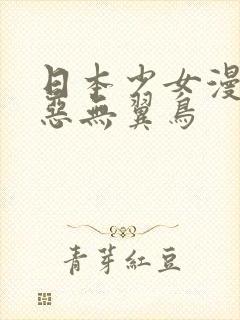 日本少女漫
惡無翼鳥
青芽紅豆